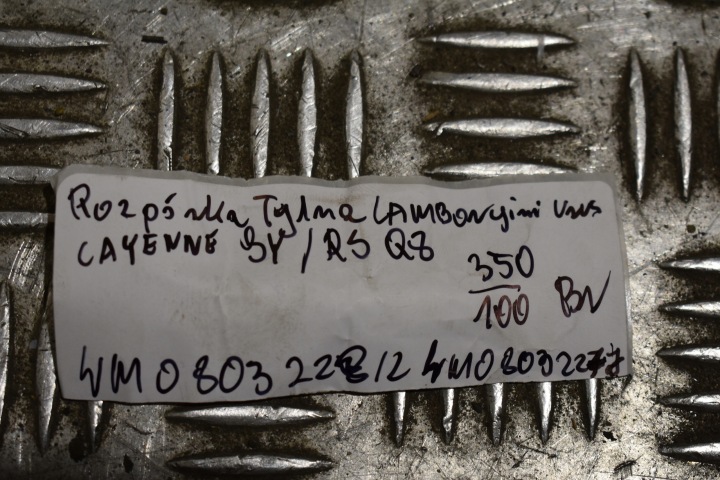 Rozpórka Tylna LAMBORGini Urus
CAYENNE 9Y / RS Q8
350
100 BN
4M0803228 12 4M0803227